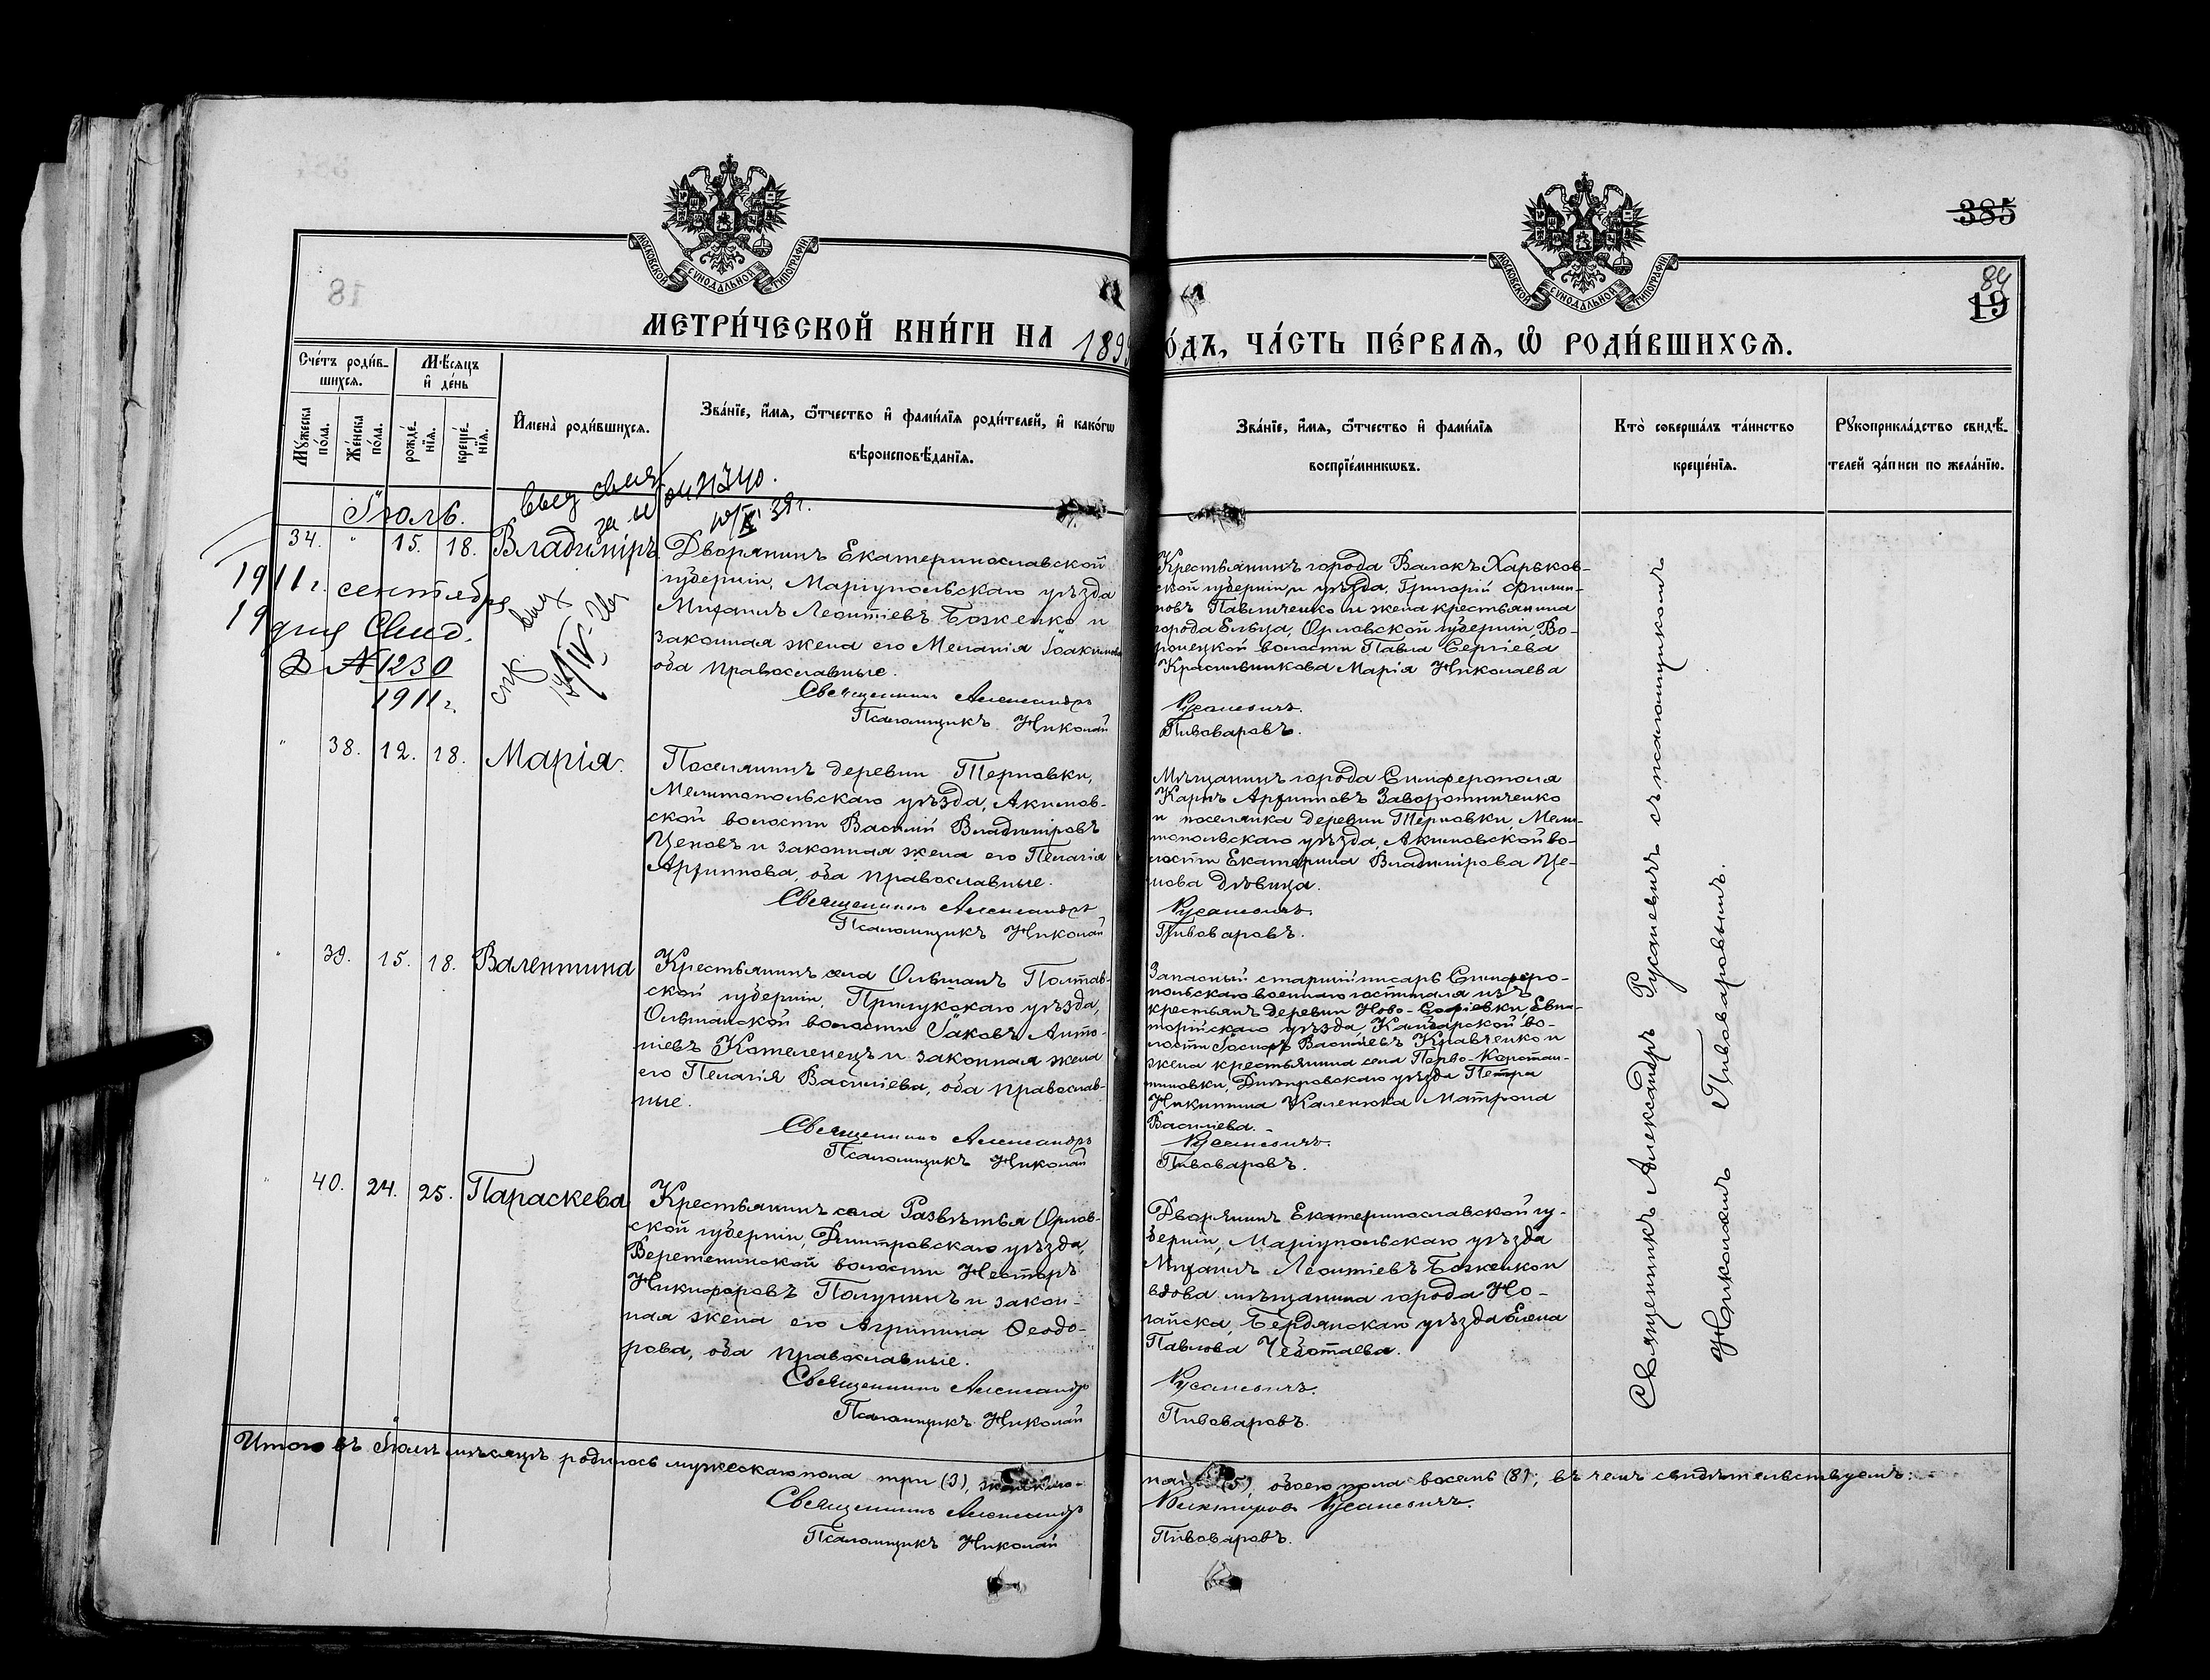 385
МОСКОВСКОЙ СУНОДАЛЬНОЙ ТИПОГРАФІИ
МОСКОВСКОЙ СУНОДАЛЬНОЙ ТИПОГРАФІИ
84
19
18
МЕТРИ́ЧЕСКОЙ КНИ́ГИ НА 1899
О́ДЪ, ЧА́СТЬ ПЕ́РВАЯ, Ѽ РОДИ́ВШИХСЯ.
Сче́тъ роди́в-
шихся.
Мꙋ́жеска по́ла.
Же́нска по́ла.
Мѣ́сяцъ и҆ де́нь
рожде́-нїя.
креще́-нїя.
И҆мена̀ роди́вшихся.
Зва́нїе, и҆́мя, ѻ҆́тчество и҆ фами́лїя роди́телей, и҆ како́гѡ
вѣроисповѣ́данїя.
Зва́нїе, и҆́мя, ѻ҆́тчество и҆ фами́лїя
воспрїе́мникѡвъ.
Кто̀ соверша́лъ та́инство
креще́нїя.
Рꙋкоприкла́дство свидѣ́-
телей за́писи по жела́нїю.
Іюль.
34. " 15. 18. Владиміръ
Дворянинъ Екатеринославской
губерніи, Маріупольскаго уѣзда
Михаилъ Леонтіевъ Боженко и
законная жена его Меланія Іоакимова
оба православные.
Священникъ Александръ
Псаломщикъ Николай
Крестьянинъ города Валокъ Харьков-
ской губерніи и уѣзда, Григорій Филип-
повъ Павличенко и жена крестьянина
города Ельца, Орловской губерніи, Во-
ронецкой волости Павла Сергіева
Красильникова Марія Николаева
Русаневичъ.
Пивоваровъ.
1911 г. сентября
19 дня Свид.
№ 1230
1911 г.
" 38. 12. 18. Марія.
Поселянинъ деревни Терновки,
Мелитопольскаго уѣзда, Акимов-
ской волости Василій Владиміровъ
Ценовъ и законная жена его Пелагія
Архиппова, оба православные.
Священникъ Александръ
Псаломщикъ Николай
Мѣщанинъ города Симферополя
Карпъ Архиповъ Заворотниченко
и поселянка деревни Терновки, Мели-
топольскаго уѣзда, Акимовской во-
лости Екатерина Владимірова Це-
нова дѣвица.
Русаневичъ.
Пивоваровъ.
" 39. 15. 18. Валентина
Крестьянинъ села Ольшанъ Полтав-
ской губерніи, Прилукскаго уѣзда,
Ольшанской волости Іаковъ Анто-
ніевъ Котеленецъ и законная жена
его Пелагія Василіева, оба православ-
ные.
Священникъ Александръ
Псаломщикъ Николай
Запасный старшій писарь Симферо-
польскаго военнаго госпиталя изъ
крестьянъ деревни Ново-Софіевки, Евпа-
торійскаго уѣзда,
волости Іосифъ Василіевъ Кравченко и
жена крестьянина села Перво-Констан-
тиновки, Днѣпровскаго уѣзда Петра
Никитина Каленюка Матрона
Василіева.
Русаневичъ.
Пивоваровъ.
" 40. 24. 25. Параскева
Крестьянинъ села Развѣтья Орлов-
ской губерніи, Дмитровскаго уѣзда,
Веретенинской волости Несторъ
Никифоровъ Полунинъ и закон-
ная жена его Агрипина Ѳеодо-
рова, оба православные.
Священникъ Александръ
Псаломщикъ Николай
Дворянинъ Екатеринославской гу-
берніи, Маріупольскаго уѣзда
Михаилъ Леонтіевъ Боженко и
вдова мѣщанина города Но-
гайска, Бердянскаго уѣзда Елена
Павлова Чеботаева.
Русаневичъ.
Пивоваровъ.
Священникъ Александръ Русаневичъ съ псаломщикомъ
Николаемъ Пивоваровымъ.
Итого въ Іюлѣ мѣсяцѣ родилось мужескаго пола три (3), женска-
пять (5), обоего пола восемь (8); въ чемъ свидѣтельствуемъ:
Священникъ Александръ
Русаневичъ.
Псаломщикъ Николай
Пивоваровъ.